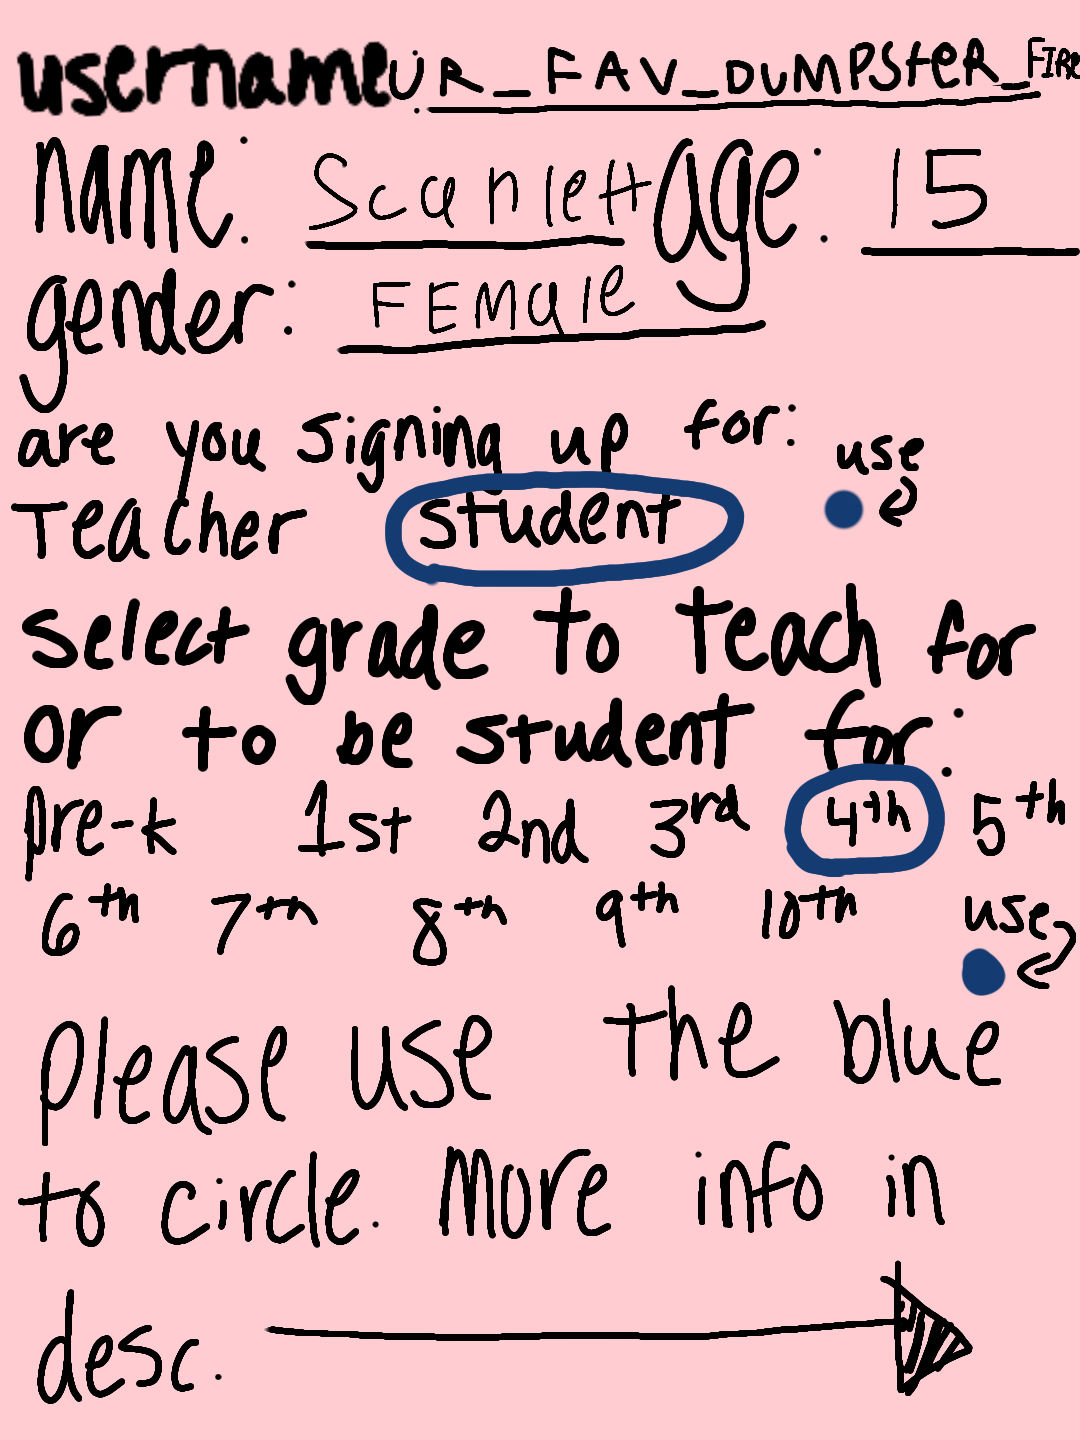 username UR_FAV_DUMPSTER_FIRE
name: Scarlett age: 15
gender: FEMALE
are you signing up for:
Teacher student use
select grade to teach for
or to be student for:
pre-k 1st 2nd 3rd 4th 5th
6th 7th 8th 9th 10th use
please use the blue
to circle. More info in
desc.